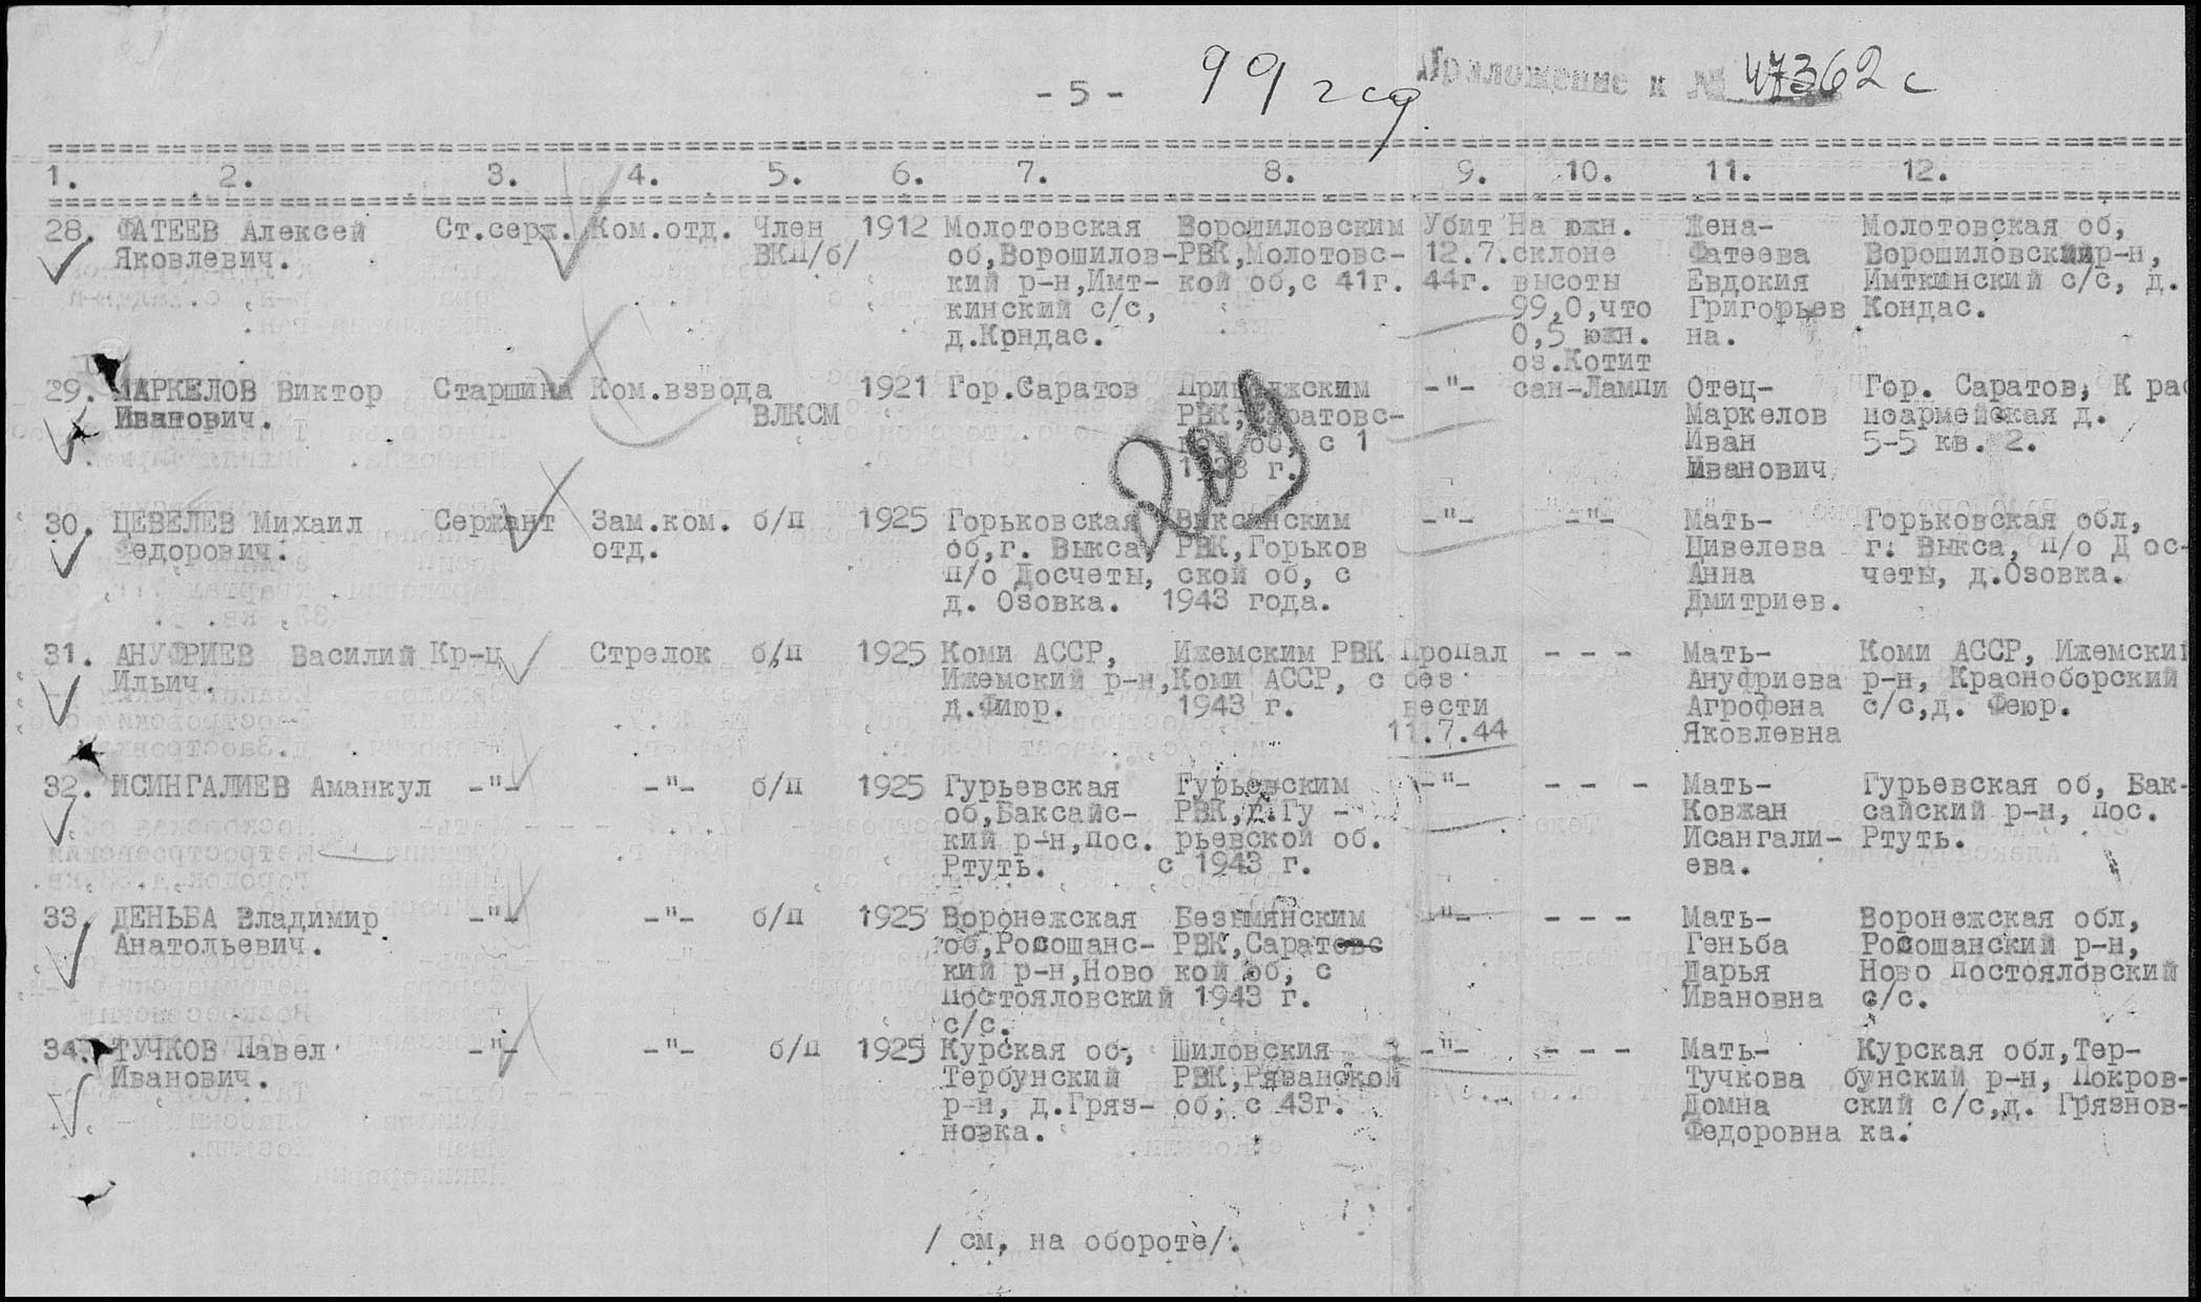 - 5 - 99 гсд Приложение к № 47362 с
1. 2. 3. 4. 5. 6. 7. 8. 9. 10. 11. 12.
28. ФАТЕЕВ Алексей Ст.серж. Ком.отд. Член 1912 Молотовская Ворошиловским Убит На южн. Жена- Молотовская об,
Яковлевич. ВКП/б/ об,Ворошилов- РВК,Молотовс- 12.7. склоне Фатеева Ворошиловский р-н,
кий р-н,Имт- кой об,с 41г. 44г. высоты Евдокия Имткинский с/с, д.
кинский с/с, 99,0,что Григорьев Кондас.
д.Крндас. 0,5 южн. на.
оз.Котит
29. МАРКЕЛОВ Виктор Старшина Ком.взвода 1921 Гор.Саратов -"- сан-Лампи Отец- Гор. Саратов, К рас
Иванович. ВЛКСМ РВК,Саратовс- Маркелов ноармейская д.
об, с 1 Иван 5-5 кв. 2.
1938 г. Иванович
30. ЦЕВЕЛЕВ Михаил Сержант Зам.ком. б/п 1925 Горьковская Выксинским -"- -"- Мать- Горьковская обл,
Федорович. отд. об,г. Выкса, РВК,Горьков Цивелева г. Выкса, п/о Д ос-
п/о Досчеты, ской об, с Анна четы, д.Озовка.
д. Озовка. 1943 года. Дмитриев.
31. АНУФРИЕВ Василий Кр-ц Стрелок б/п 1925 Коми АССР, Ижемским РВК Пропал - - - Мать- Коми АССР, Ижемский
Ильич. Ижемский р-н, Коми АССР, с без Ануфриева р-н, Красноборский
д.Фиюр. 1943 г. вести Агрофена с/с,д. Феюр.
11.7.44 Яковлевна
32. ИСИНГАЛИЕВ Аманкул -"- -"- б/п 1925 Гурьевская Гурьевским -"- - - - Мать- Гурьевская об, Бак-
об,Баксайс- РВК,г.Гу - Ковжан сайский р-н, пос.
кий р-н,пос. рьевской об. Исангали- Ртуть.
Ртуть. с 1943 г. ева.
33. ДЕНЬБА Владимир -"- -"- б/п 1925 Воронежская Безымянским -"- - - - Мать- Воронежская обл,
Анатольевич. об,Росошанс- РВК,Саратовс Геньба Росошанский р-н,
кий р-н,Ново кой об, с Дарья Ново Постояловский
Постояловский 1943 г. Ивановна с/с.
с/с.
34. ТУЧКОВ Павел -"- -"- б/п 1925 Курская об, Шиловския -"- - - - Мать- Курская обл,Тер-
Иванович. Тербунский РВК,Рязанской Тучкова бунский р-н, Покров-
р-н, д.Гряз- об, с 43г. Домна ский с/с,д. Грязнов-
новка. Федоровна ка.
/ см, на обороте/.